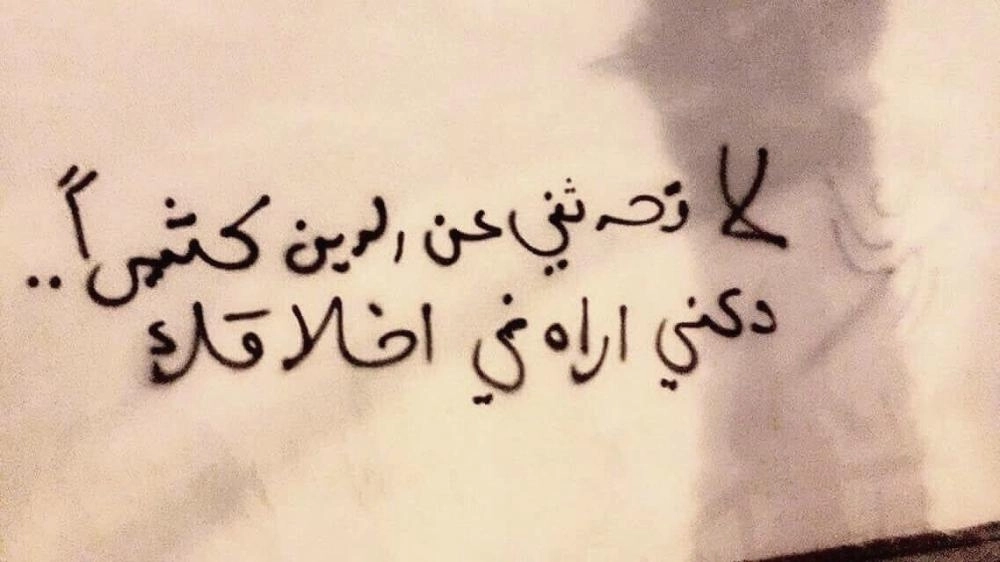 لا تحدثني عن الدين كثيراً ..
دعني اراه في اخلاقك